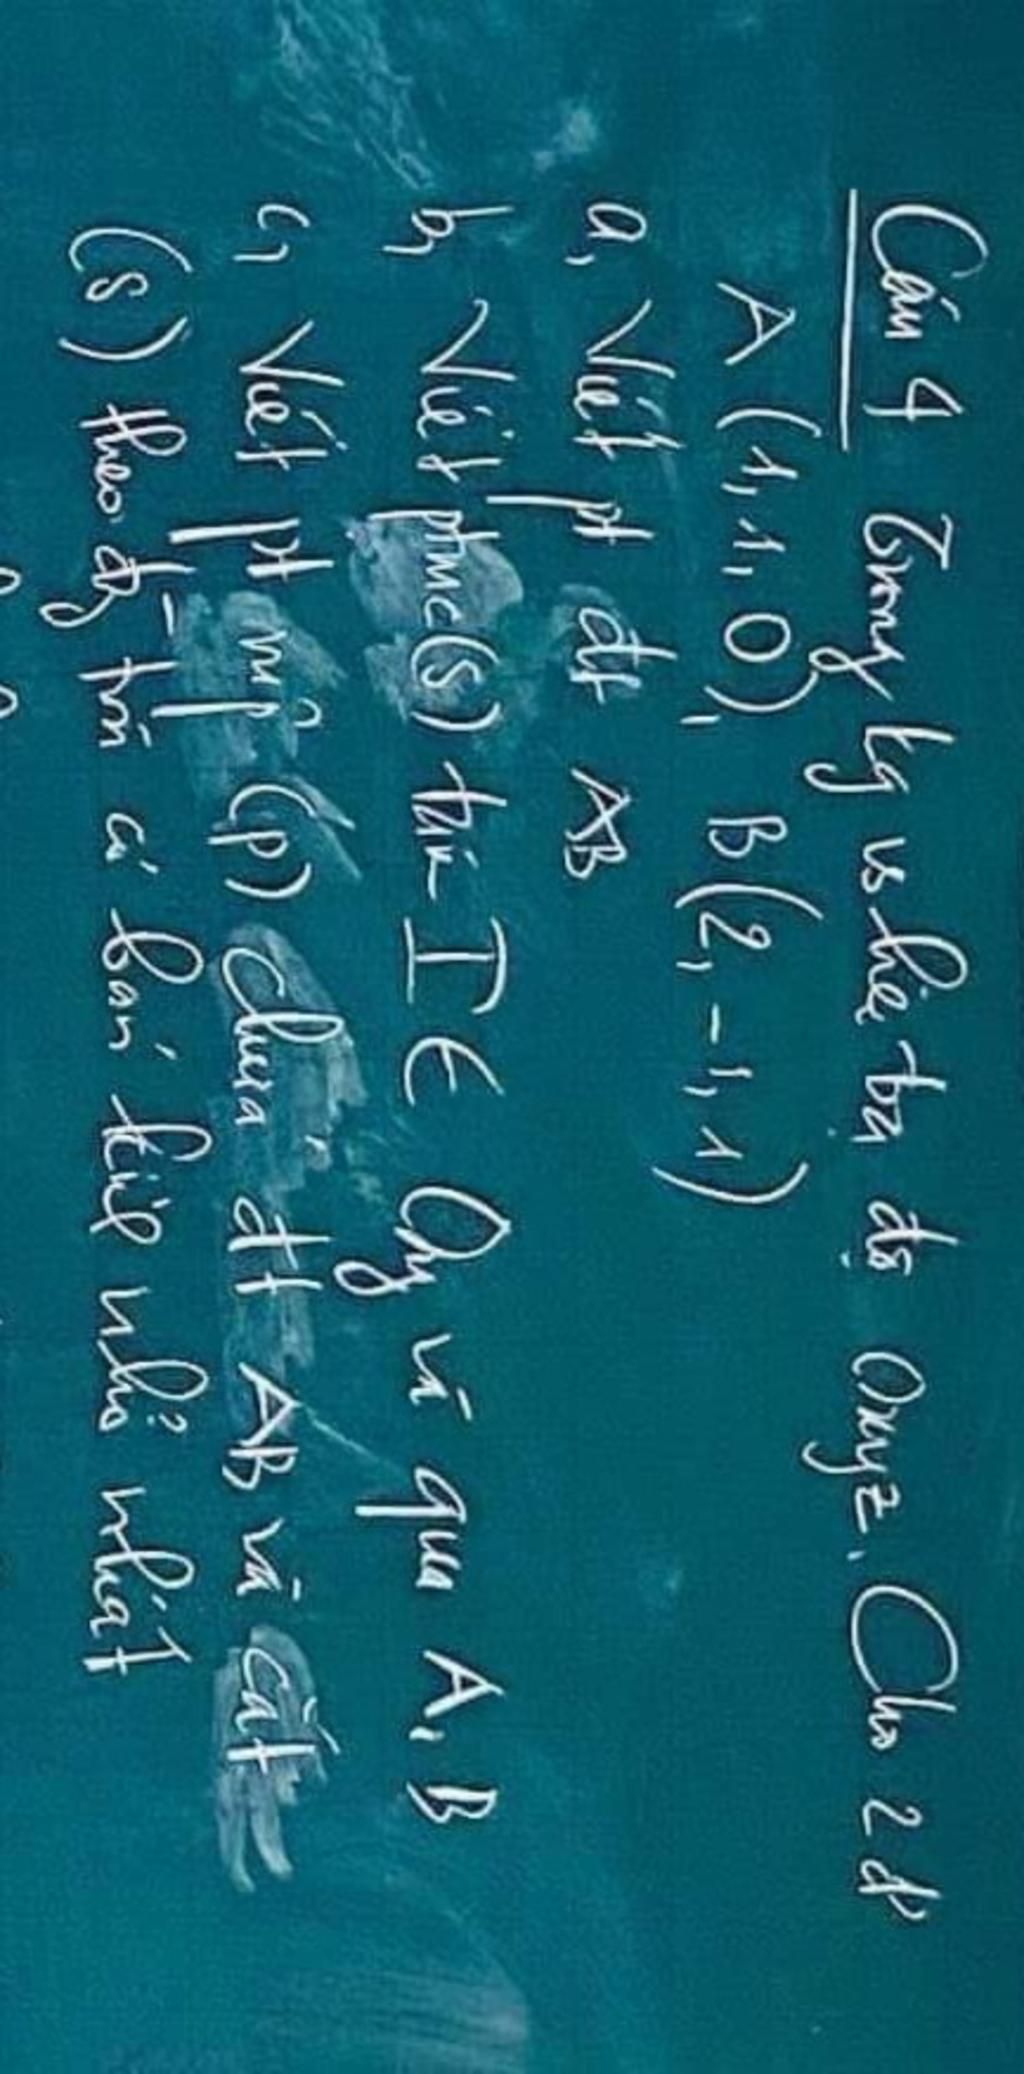 Câu 4 Trong kg vs hệ tọa độ Oxyz. Cho 2 đ'
A(1,1,0), B(2,-1,1)
a, Viết pt đt AB
b, Viết ptmc(S) tâm I ∈ Oy và qua A, B
c, Viết pt mp (P) chứa đt AB và cắt
(S) theo đg tròn có bán kính nhỏ nhất